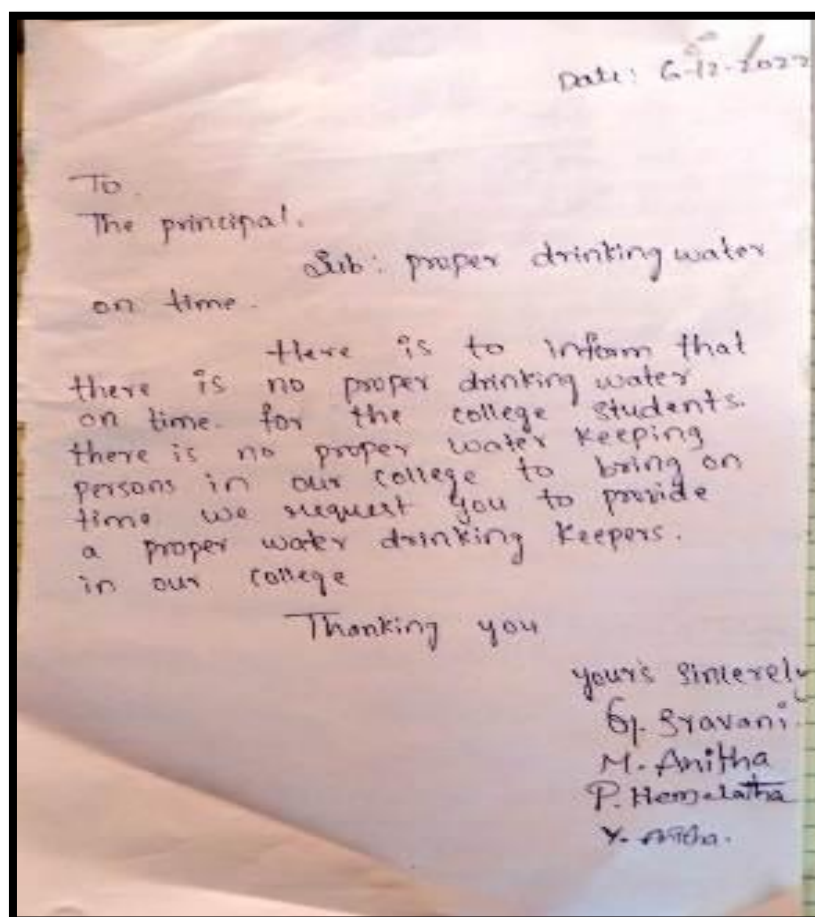 Date: 6-12-2022
To.
The principal.
Sub: proper drinking water
on time.
Here is to inform that
there is no proper drinking water
on time. for the college students.
there is no proper water keeping
persons in our college to bring on
time we request you to provide
a proper water drinking keepers.
in our college
Thanking you
your's sincerely
G. Sravani.
M. Anitha
P. Hemalatha
Y. Anitha.